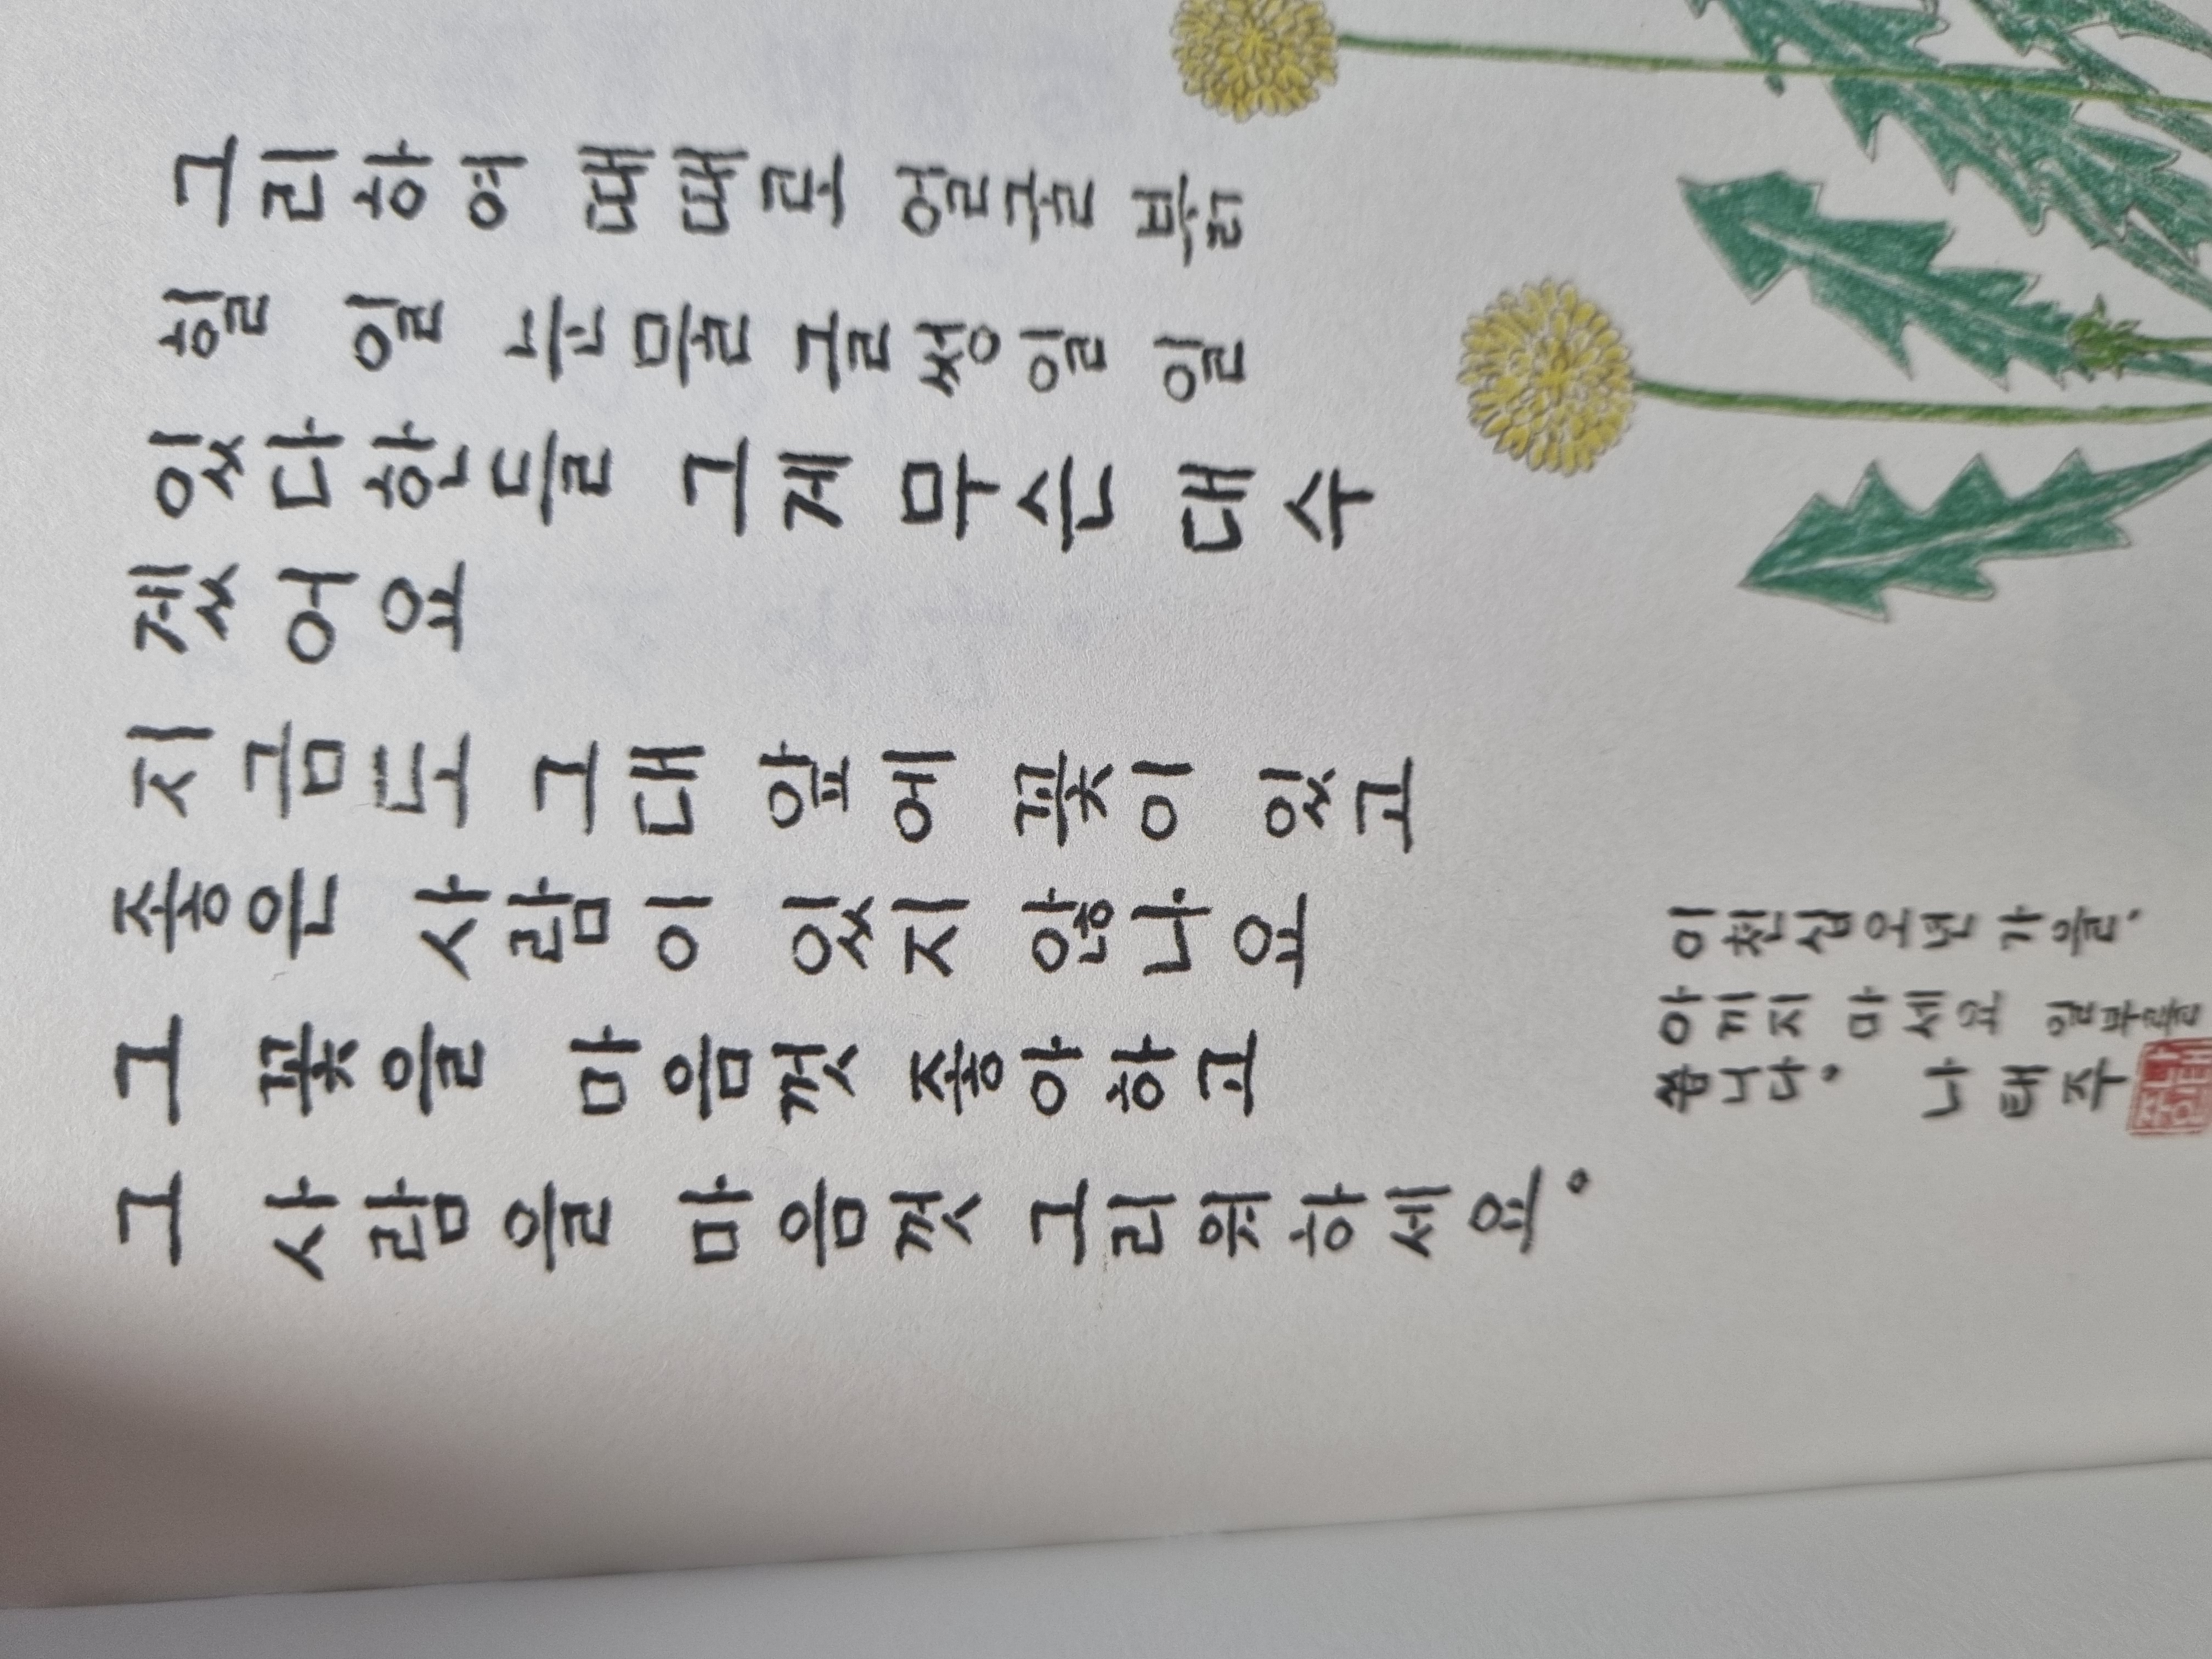 그리하여 때때로 얼굴 붉
힐 일 눈물 글썽일 일
있다한들 그게 무슨 대수
겠어요
지금도 그대 앞에 꽃이 있고
좋은 사람이 있지 않나요
그 꽃을 마음껏 좋아하고
그 사람을 마음껏 그리워하세요.
이천십오년 가을,
아끼지 마세요 일부를
씁니다. 나태주